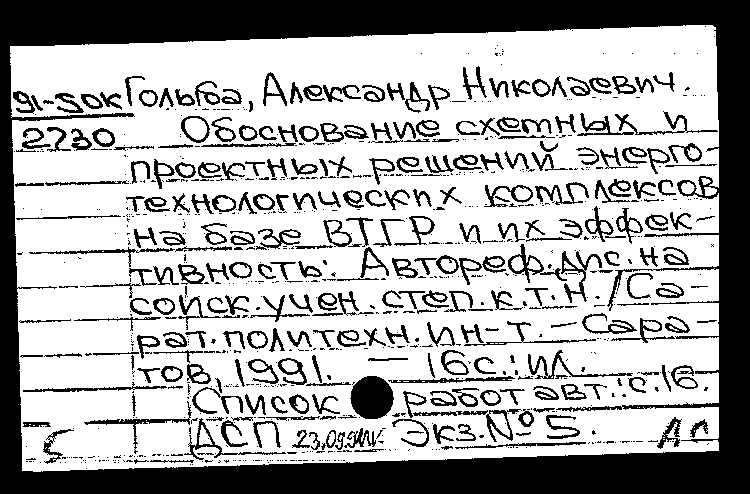 91-5ОК Гольба, Александр Николаевич.
2730 Обоснование схемных и
проектных решений энерго-
технологических комплексов
на базе ВТГР и их эффек-
тивность: Автореф. дис. на
соиск. учен. степ. к.т.н. / Са-
рат. политехн. ин-т. – Сара-
тов, 1991. — 16с.: ил.
Список работ авт.: с.16.
ДСП Экз. № 5.